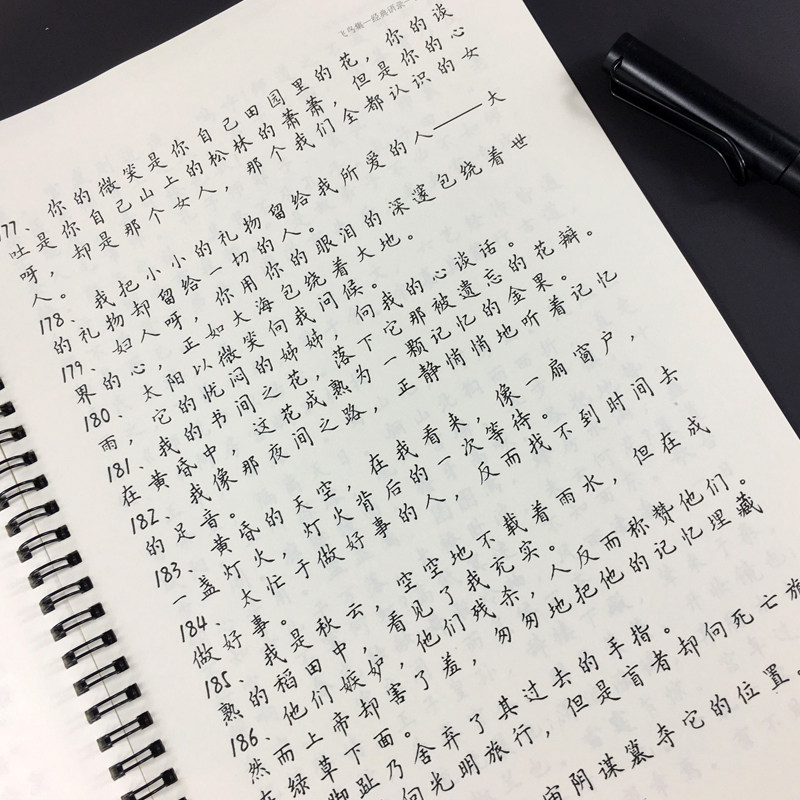 飞鸟集—经典讲录
77、你的微笑是你自己田园里的花，你的谈
吐是你自己山上的松林的萧萧，但是你的心
呀，却是那个女人，那个我们全都认识的女
人。
178、我把小小的礼物留给我所爱的人——大
的礼物却留给一切的人。
179、妇人呀，你用你的眼泪的深邃包绕着世
界的心，正如大海包绕着大地。
180、太阳以微笑向我问候。
雨，它的忧闷的姊姊，向我的心谈话。
181、我的书间之花，落下它那被遗忘的花瓣。
在黄昏中，这花成熟为一颗记忆的金果。
182、我像那夜间之路，正静悄悄地听着记忆
的足音。
183、黄昏的天空，在我看来，像一扇窗户，
一盏灯火，灯火背后的一次等待。
184、太忙于做好事的人，反而找不到时间去
做好事。
185、我是秋云，空空地不载着雨水，但在成
熟的稻田中，看见了我充实。
186、他们嫉妒，他们残杀，人反而称赞他们。
然而上帝却害了羞，匆匆地把他的记忆埋藏
在绿草下面。
脚趾乃舍弃了其过去的手指。
向光明旅行，但是盲者却向死亡旅
宙阴谋篡夺它的位置。